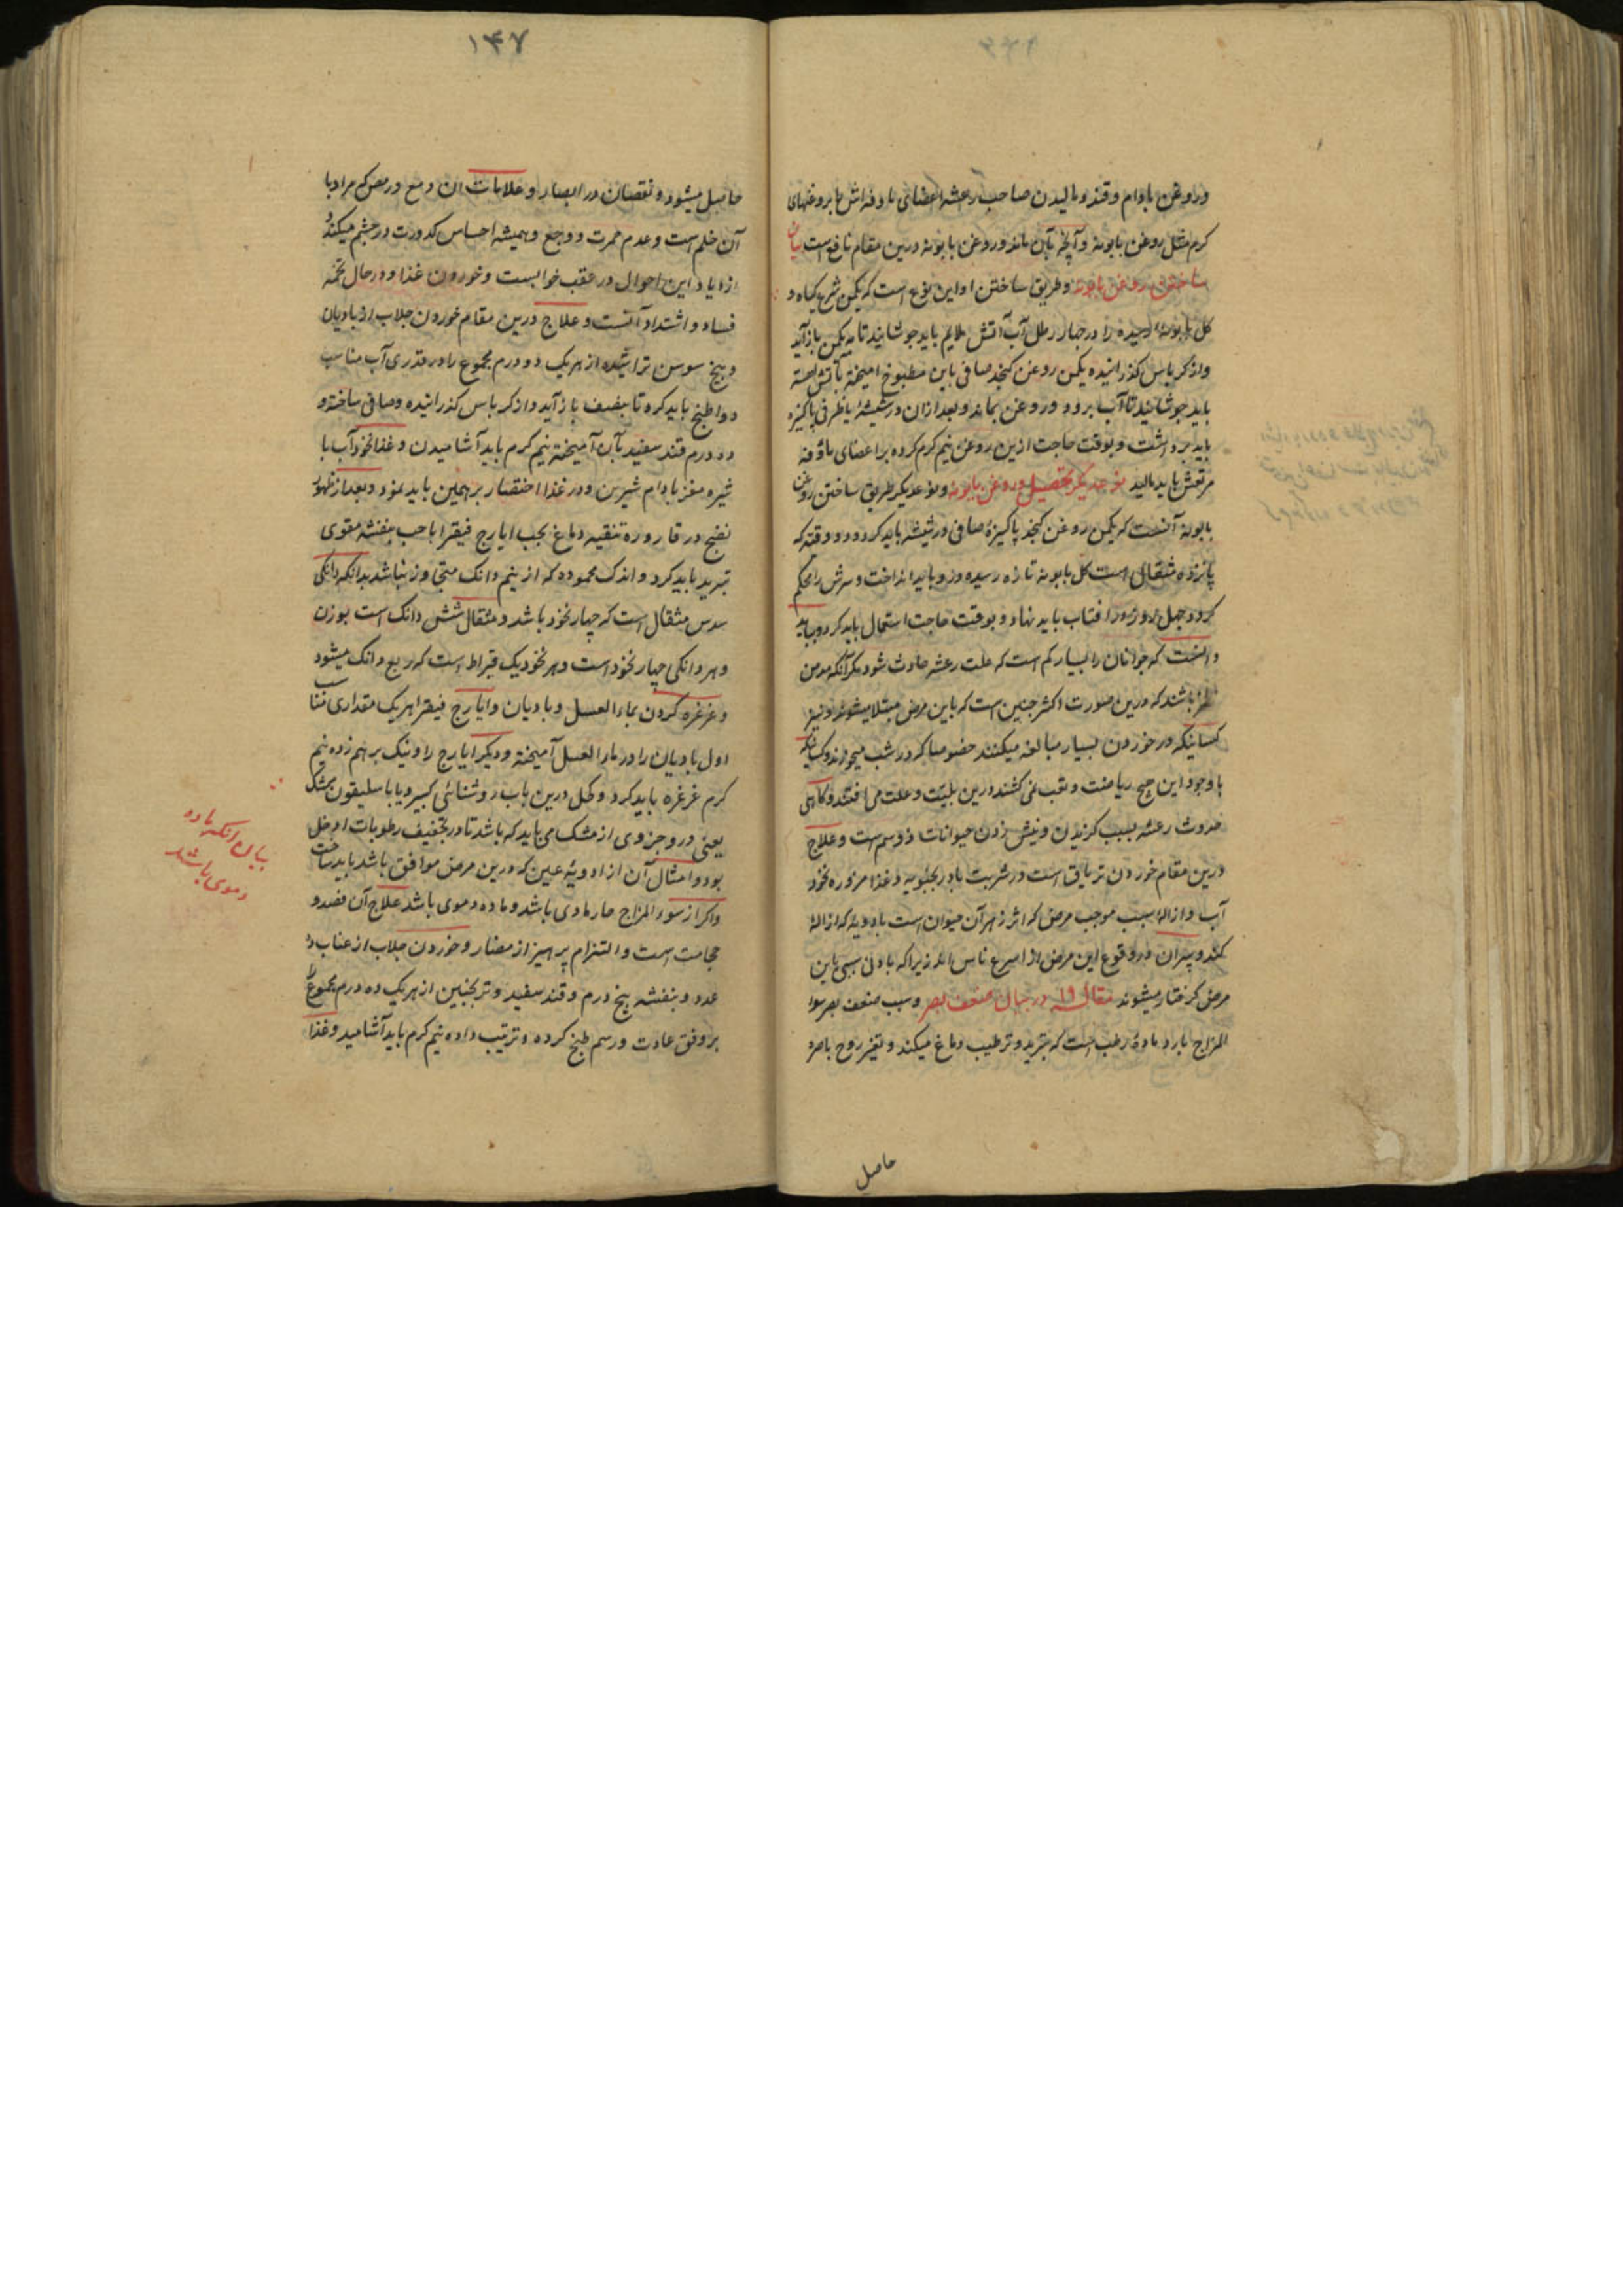 و روغن بادام و قند و مالیدن صاحب رعشه اعضای ماوفه اش را بروغنهای
کرم مثل روغن بابونه و آنچه بآن ماند و روغن بابونه درین مقام نافع است بیان
ساختن روغن بابونه و طریق ساختن او این نوع است که یکمن شرع کیاه و
کل بابونه رسیده را در چهار رطل آب آتش ملایم باید جوشانید تا به یکمن باز آید
و از کرباس کذرانیده یکمن روغن کنجد صافی باین مطبوخ امیخته بآتش اهسته
باید جوشانید تا آب برود و روغن بماند و بعد ازان در شیشه یا ظرفی پاکیزه
باید برداشت و بوقت حاجت ازین روغن نیم کرم کرده بر اعضای ماؤفه
مرتعش باید مالید نوع دیکر تحصیل روغن بابونه و نوع دیکر طریق ساختن روغن
بابونه آنست که یکمن روغن کنجد پاکیزه صافی در شیشه باید کرد و دو وقیه که
پانزده مثقال است کل بابونه تازه رسیده درو باید انداخت و سرش را محکم
کرد و چهل روز در افتاب باید نهاد و بوقت حاجت استعمال باید کرد و بباید
دانست که جوانان را بسیار کم است که علت رعشه حادث شود مکر آنکه مدمن
خمر باشند که درین صورت اکثر چنین است که باین مرض مبتلا میشوند و نیز
کسانیکه در خوردن بسیار مبالغه میکنند خصوصا که در شب میخورند و کسانیکه
با وجود این هیچ ریاضت و تعب نمی کشند درین بلیت و علت می افتند و کاهی
حدوث رعشه بسبب کزیدن و نیش زدن حیوانات ذو سم است و علاج
درین مقام خوردن تریاق است در شربت بادرنجبویه و غذا مزوره نخود
آب و ازاله سبب موجب مرض که اثر زهر آن حیوان است بادویه که ازاله
کند و پیران در وقوع این مرض از اسرع ناس اند زیرا که بادنی سببی باین
مرض کرفتار میشوند مقاله ۱۹ در بیان ضعف بصر و سبب ضعف بصر سوء
المزاج بارد مادهٔ رطب است که تبرید و ترطیب دماغ میکند و تغیر روح باصره
حاصل
۱۴۷
حاصل میشود و نقصان در ابصار و علامات ان دمع و رمص که مراد با
آن خلم است و عدم حمرت و وجع و همیشه احساس کدورت در چشم میکند و
ازدیاد این احوال در عقب خوابست و خوردن غذا و در حال تخمه
فساد و اشتداد آنست و علاج درین مقام خوردن جلاب از بادیان
و بیخ سوسن تراشیده از هریک دو درم مجموع را در قدری آب مناسب
دوا طبخ باید کرد تا بنصف باز آید و از کرباس کذرانیده و صافی ساخته و
ده درم قند سفید بآن آمیخته نیم کرم باید آشامیدن و غذا نخود آب با
شیره مغز بادام شیرین و در غذا اختصار بر همین باید نمود و بعد از ظهور
نضج در قاروره تنقیه دماغ بحب ایارج فیقرا با حب بنفشه مقوی
تبرید باید کرد و اندک محموده که از نیم دانک متجاوز نباشد بدانکه دانکی
سدس مثقال است که چهار نخود باشد و مثقال شش دانک است بوزن
و هر دانکی چهار نخود است و هر نخود یک قیراط است که ربع دانک میشود
و غرغره کردن بماء العسل و بادیان و ایارج فیقرا هریک مقداری مناسب
اول بادیان را در ماء العسل آمیخته و دیکر ایارج را و نیک بر هم زده نیم
کرم غرغره باید کرد و کحل درین باب روشنائی کبیر و یا باسلیقون بمشک
یعنی درو جزوی از مشک می باید که باشد تا در تجفیف رطوبات ادخل
بود و امثال آن از ادویهٔ عین که درین مرض موافق باشد باید ساخت
و اکر از سوء المزاج حار مادی باشد و ماده دموی باشد علاج آن فصد و
حجامت است و التزام پرهیز از مضار و خوردن جلاب از عناب ده
عدد و بنفشه پنج درم و قند سفید و ترنجبین از هریک ده درم مجموع را
بر وفق عادت و رسم طبخ کرده و ترتیب داده نیم کرم باید آشامید و غذا
بیان انکه ماده
دموی باشد